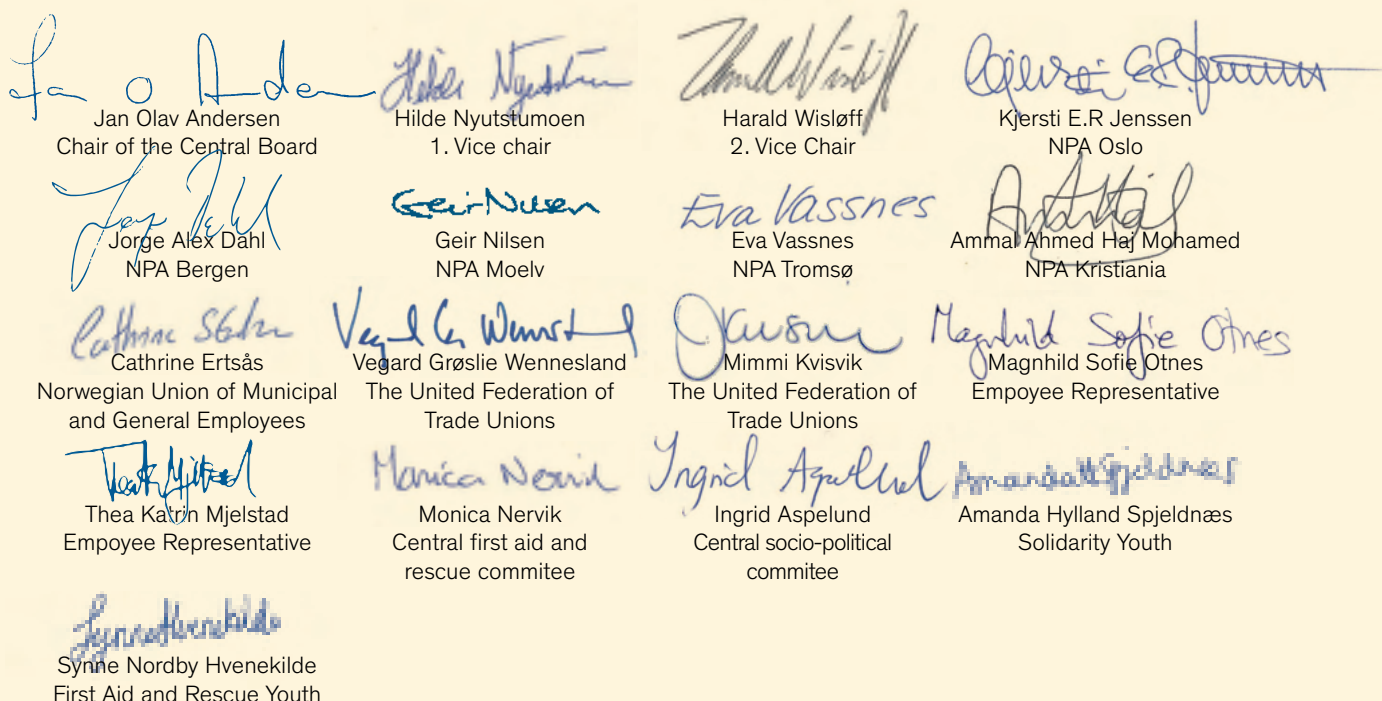 Jan Olav Andersen
Chair of the Central Board
Hilde Nyutstumoen
1. Vice chair
Harald Wisløff
2. Vice Chair
Kjersti E.R Jenssen
NPA Oslo
Jorge Alex Dahl
NPA Bergen
Geir Nilsen
Geir Nilsen
NPA Moelv
Eva Vassnes
Eva Vassnes
NPA Tromsø
Ammal Ahmed Haj Mohamed
NPA Kristiania
Cathrine Ertsås
Norwegian Union of Municipal
and General Employees
Vegard Grøslie Wennesland
The United Federation of
Trade Unions
Mimmi Kvisvik
The United Federation of
Trade Unions
Magnhild Sofie Otnes
Magnhild Sofie Otnes
Empoyee Representative
Thea Katrin Mjelstad
Empoyee Representative
Monica Nervik
Monica Nervik
Central first aid and
rescue commitee
Ingrid
Ingrid Aspelund
Central socio-political
commitee
Amanda Hylland Spjeldnæs
Solidarity Youth
Synne Nordby Hvenekilde
First Aid and Rescue Youth